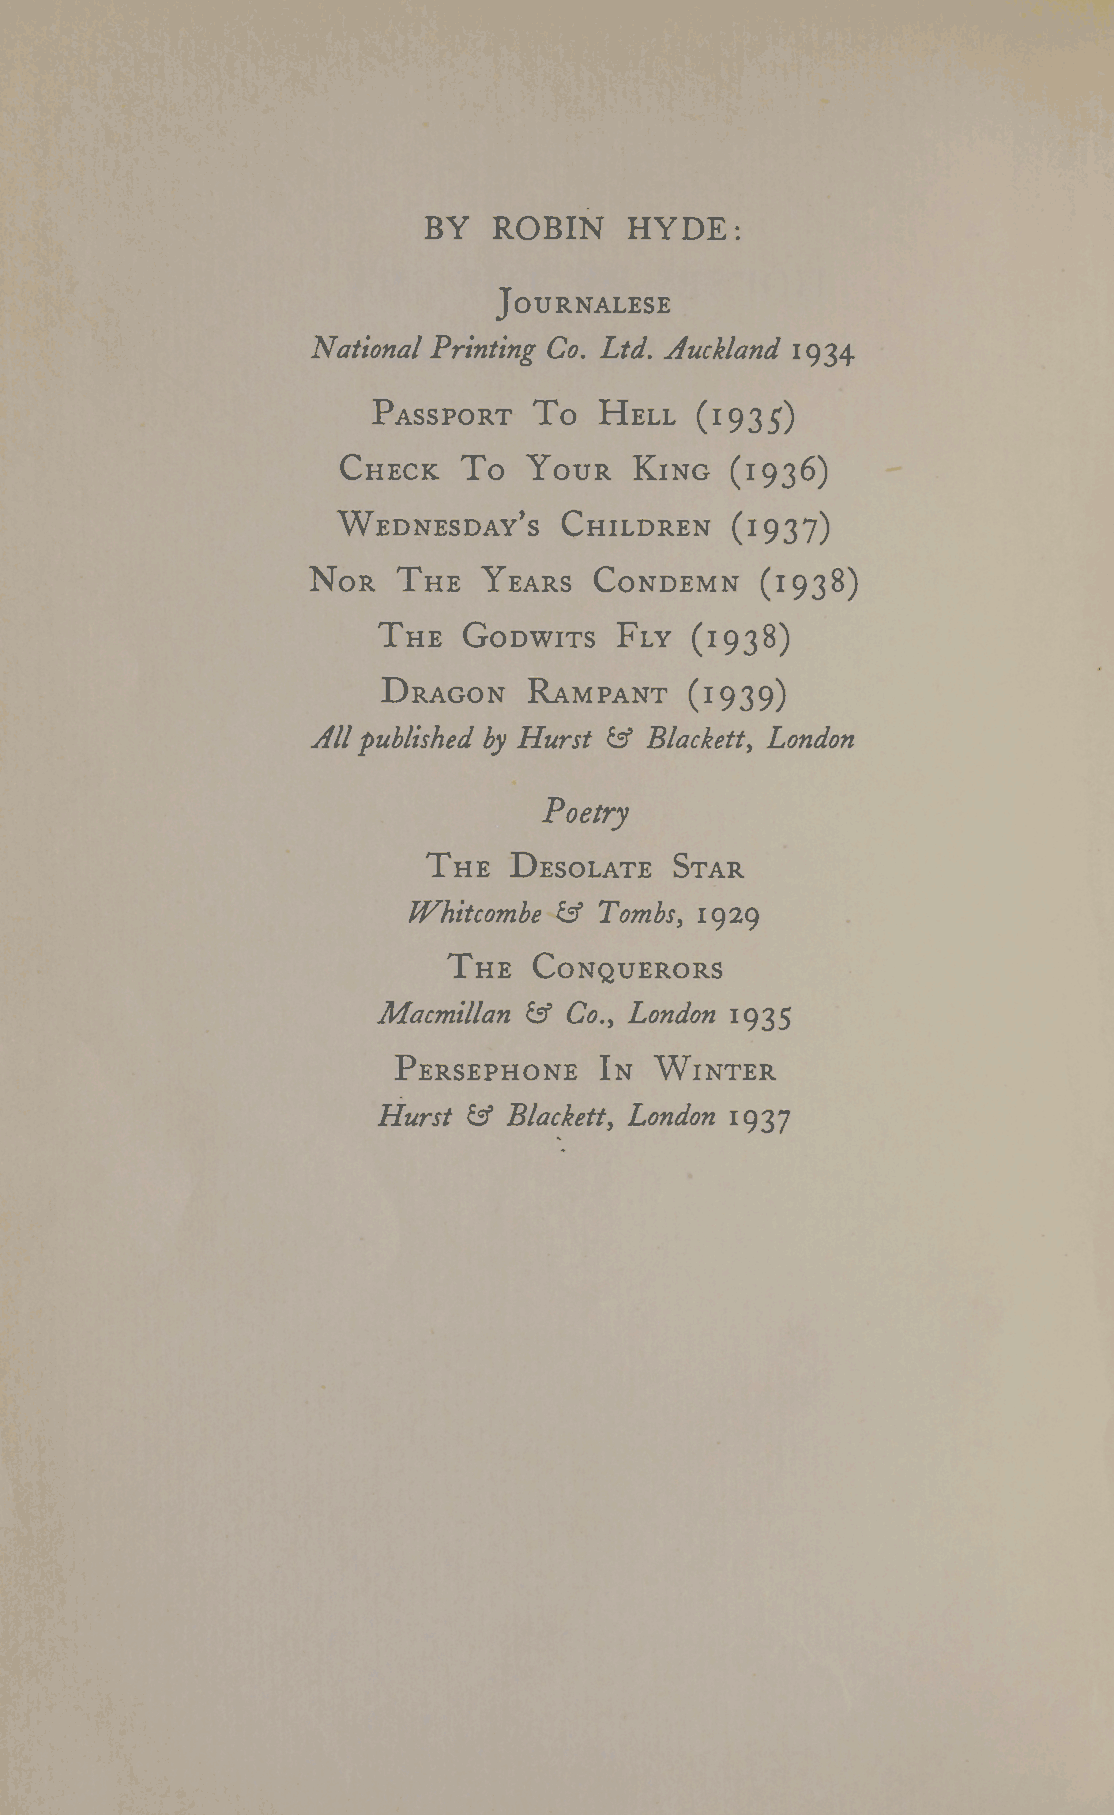 BY ROBIN HYDE:
JOURNALESE
National Printing Co. Ltd. Auckland 1934
PASSPORT TO HELL (1935)
CHECK TO YOUR KING (1936)
WEDNESDAY'S CHILDREN (1937)
NOR THE YEARS CONDEMN (1938)
THE GODWITS FLY (1938)
DRAGON RAMPANT (1939)
All published by Hurst & Blackett, London
Poetry
THE DESOLATE STAR
Whitcombe & Tombs, 1929
THE CONQUERORS
Macmillan & Co., London 1935
PERSEPHONE IN WINTER
Hurst & Blackett, London 1937